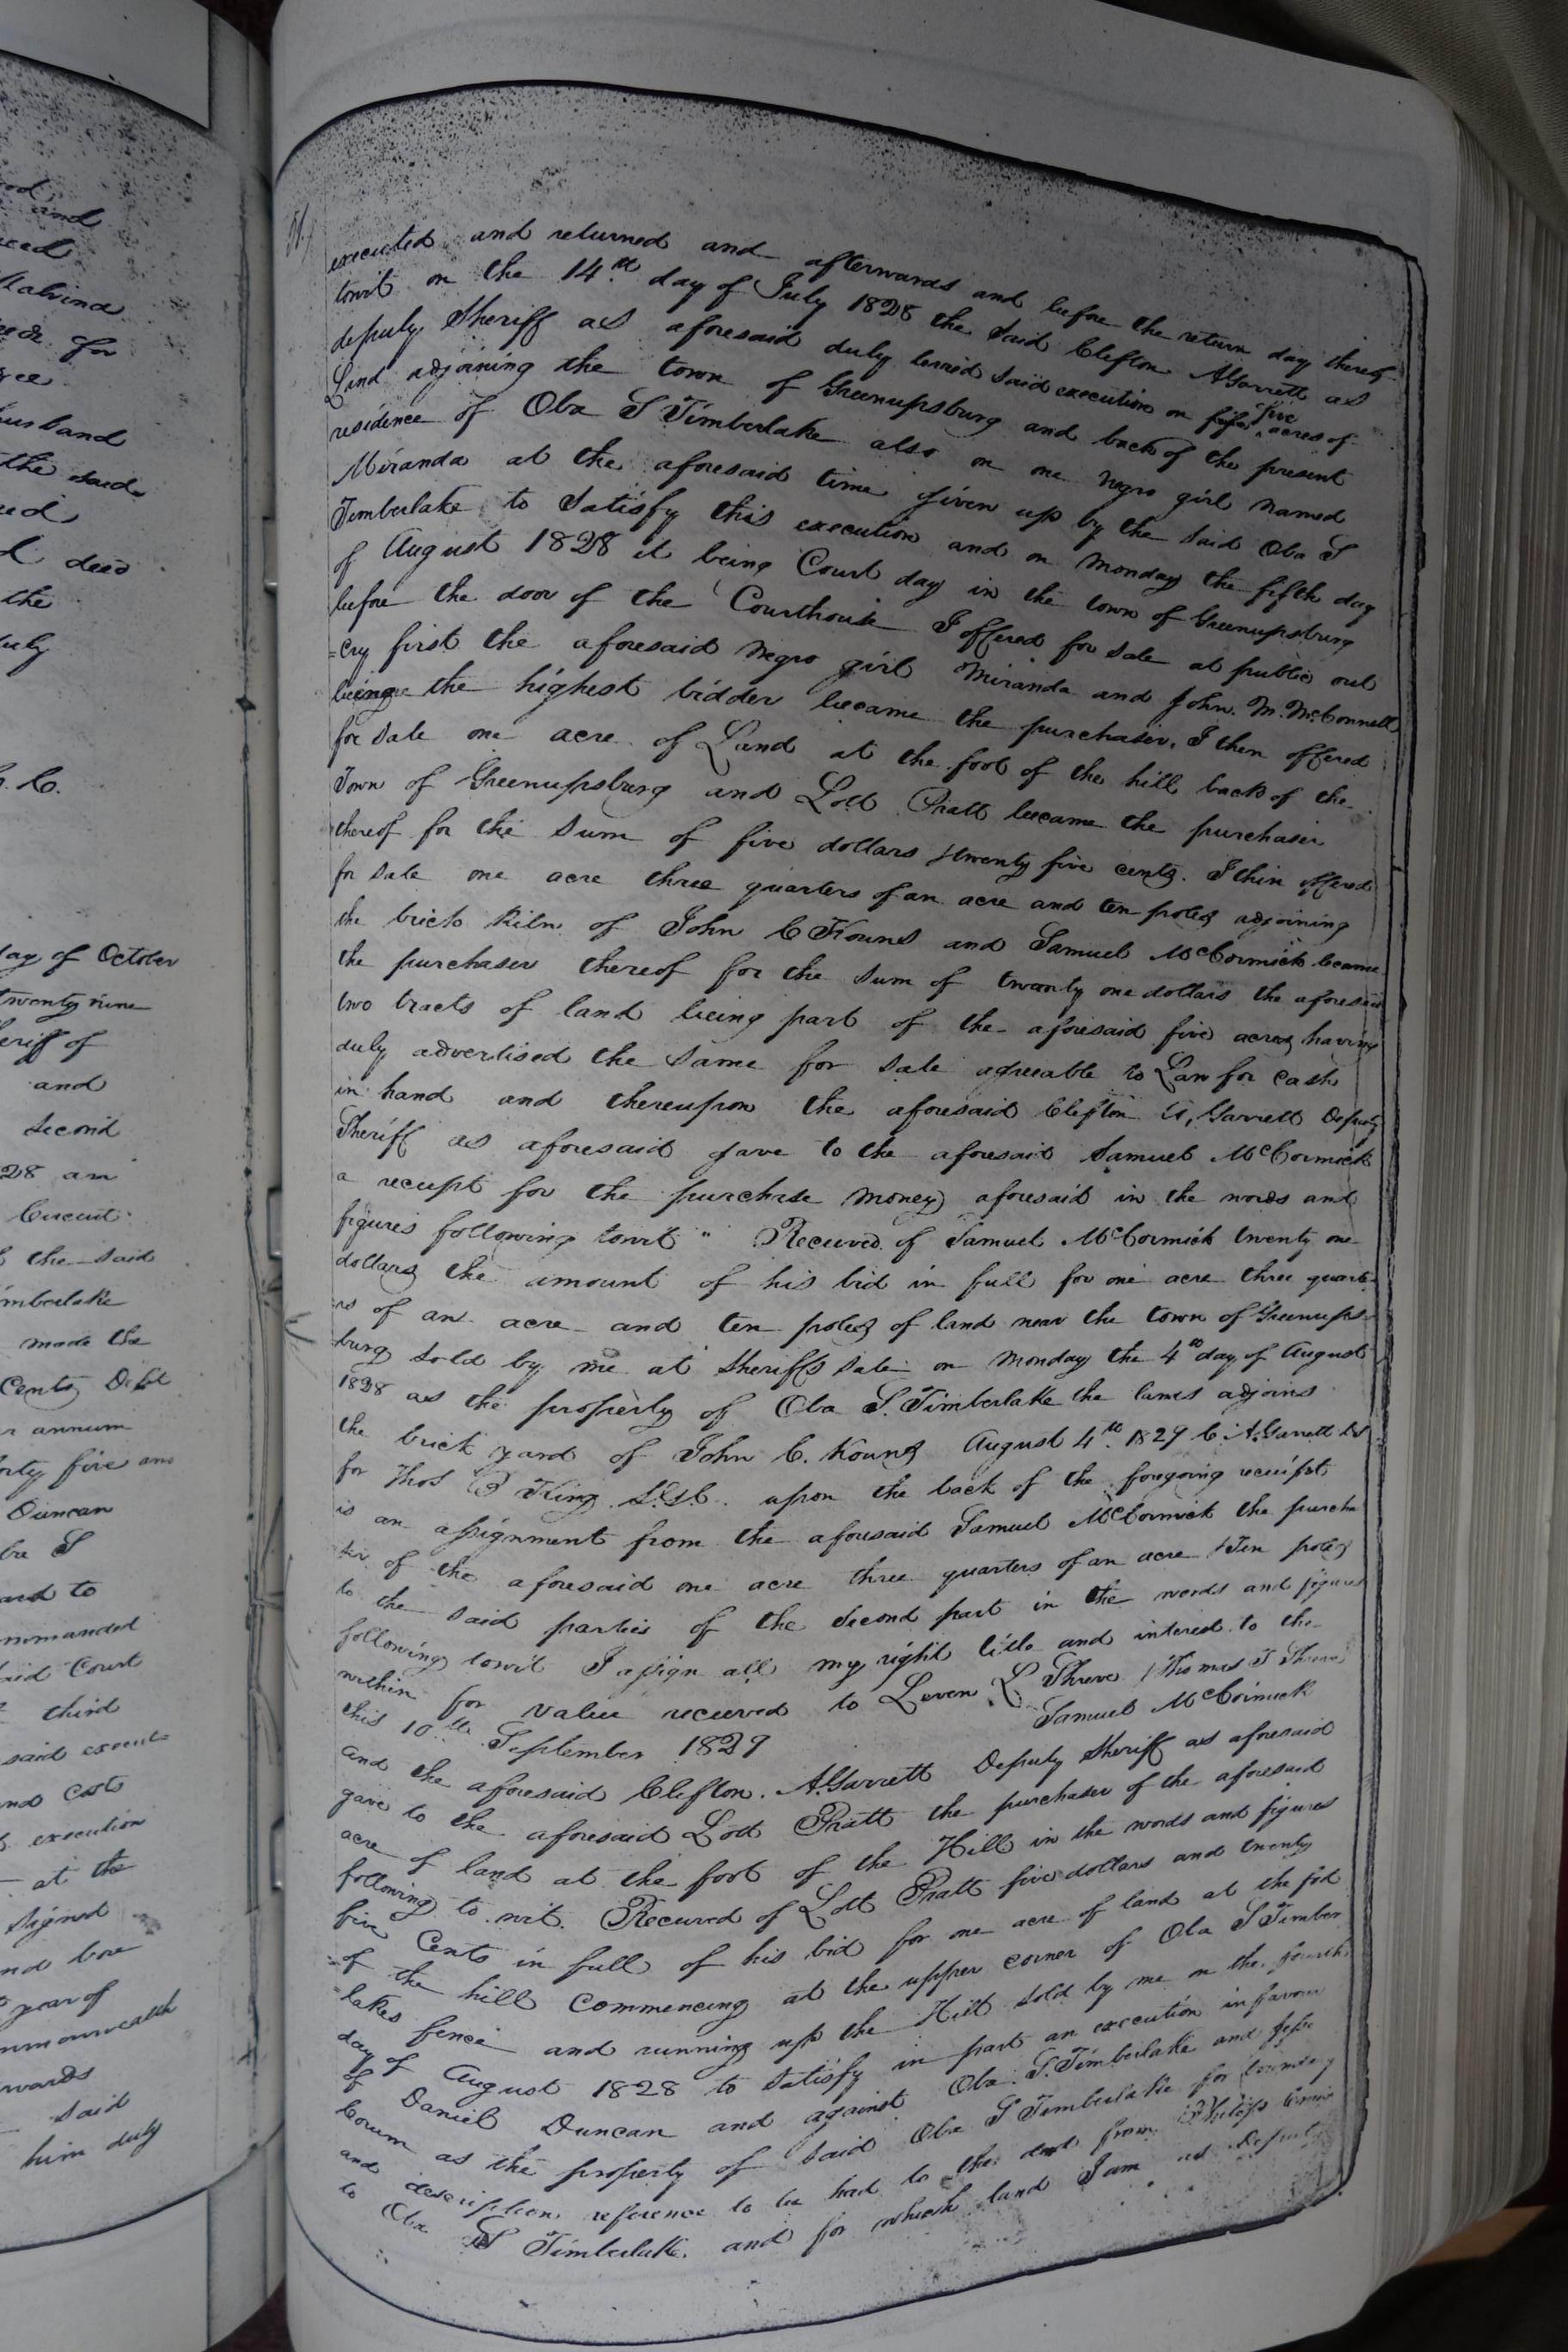 and
day of October
twenty nine
Sheriff of
and
Second
Circuit
the said
made the
Cents Debt
annum
forty five and
Duncan
S
and to
commanded
said Court
third
said
and costs
execution
at the
signed
and
year of
wards
said
him duly
executed and returned and afterwards and before the return day thereof
towit on the 14th day of July 1828 the said Clefton A Garrett as
deputy Sheriff as aforesaid duly levied said execution on five acres of
Land adjoining the town of Greenupsburg and back of the present
residence of Oba S Timberlake also on one negro girl named
Miranda at the aforesaid time given up by the said Oba S
Timberlake to Satisfy this execution and on Monday the fifth day
of August 1828 it being Court day in the town of Greenupsburg
before the door of the Courthouse I offered for sale at public out
=cry first the aforesaid negro girl Miranda and John. M. McConnell
being the highest bidder became the purchaser. I then offered
for sale one acre of Land at the foot of the hill back of the
Town of Greenupsburg and Lott Pratt became the purchaser
thereof for the Sum of five dollars & twenty five cents. I then offered
for sale one acre three quarters of an acre and ten poles adjoining
the brick kiln of John C Kouns and Samuel McCormick became
the purchaser thereof for the sum of twenty one dollars the aforesaid
two tracts of land being part of the aforesaid five acres having
duly advertised the same for sale agreeable to Law for cash
in hand and thereupon the aforesaid Clefton A, Garrett Deputy
Sheriff as aforesaid gave to the aforesaid Samuel McCormick
a receipt for the purchase money aforesaid in the words and
figures following towit " Received of Samuel McCormick twenty one
dollars the amount of his bid in full for one acre three quart-
ers of an acre and ten poles of land near the town of Greenups-
burg sold by me at Sheriffs Sale on Monday the 4th day of August
1828 as the property of Oba S. Timberlake the lands adjoins
the brick yard of John C. Kouns August 4th. 1829 C. A. Garrett DS
for Thos B King upon the back of the foregoing receipt
is an assignment from the aforesaid Samuel McCormick the purcha
ser of the aforesaid one acre three quarters of an acre & Ten poles
to the said parties of the second part in the words and figures
following towit I assign all my right title and interest to the
within for value received to Leven L Shreve & Thomas T Shreve
this 10th September 1829 Samuel McCormick
and the aforesaid Clefton. A. Garrett Deputy Sheriff as aforesaid
gave to the aforesaid Lott Pratt the purchaser of the aforesaid
acre of land at the foot of the Hill in the words and figures
following to wit. Received of Lott Pratt five dollars and twenty
five Cents in full of his bid for one acre of land at the foot
of the hill commencing at the upper corner of Oba S Timber
lakes fence and running up the Hill sold by me on the fourth
day of August 1828 to satisfy in part an execution in favour
of Daniel Duncan and against Oba. S. Timberlake and
as the property of said Oba S Timberlake for
and description reference to be had to the deed from
to Oba S Timberlake. and for which land I am as Deputy